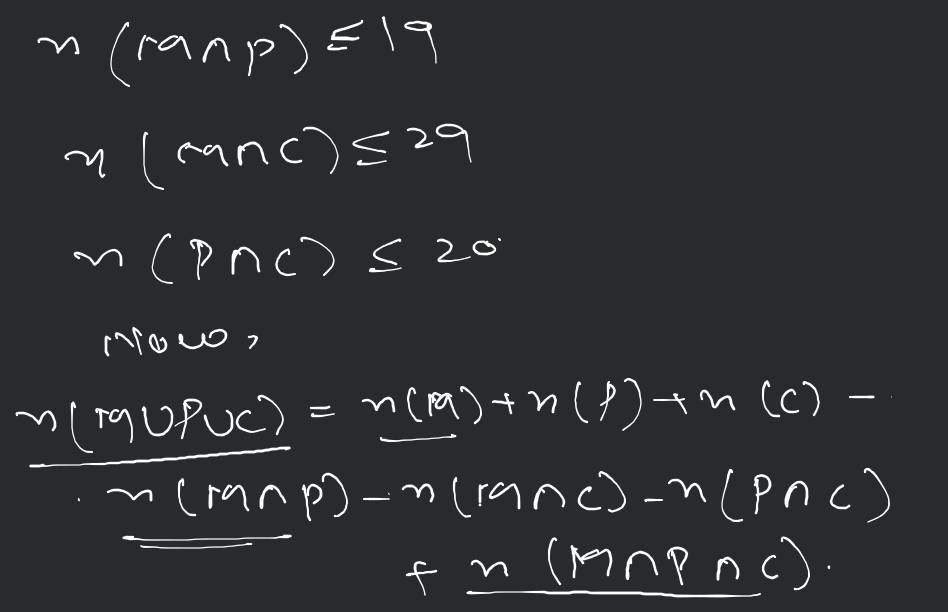 n(M∩P) ≤ 19
n(M∩C) ≤ 29
n(P∩C) ≤ 20
Now,
n(M∪P∪C) = n(M) + n(P) + n(C) -
n(M∩P) - n(M∩C) - n(P∩C)
+ n(M∩P∩C).